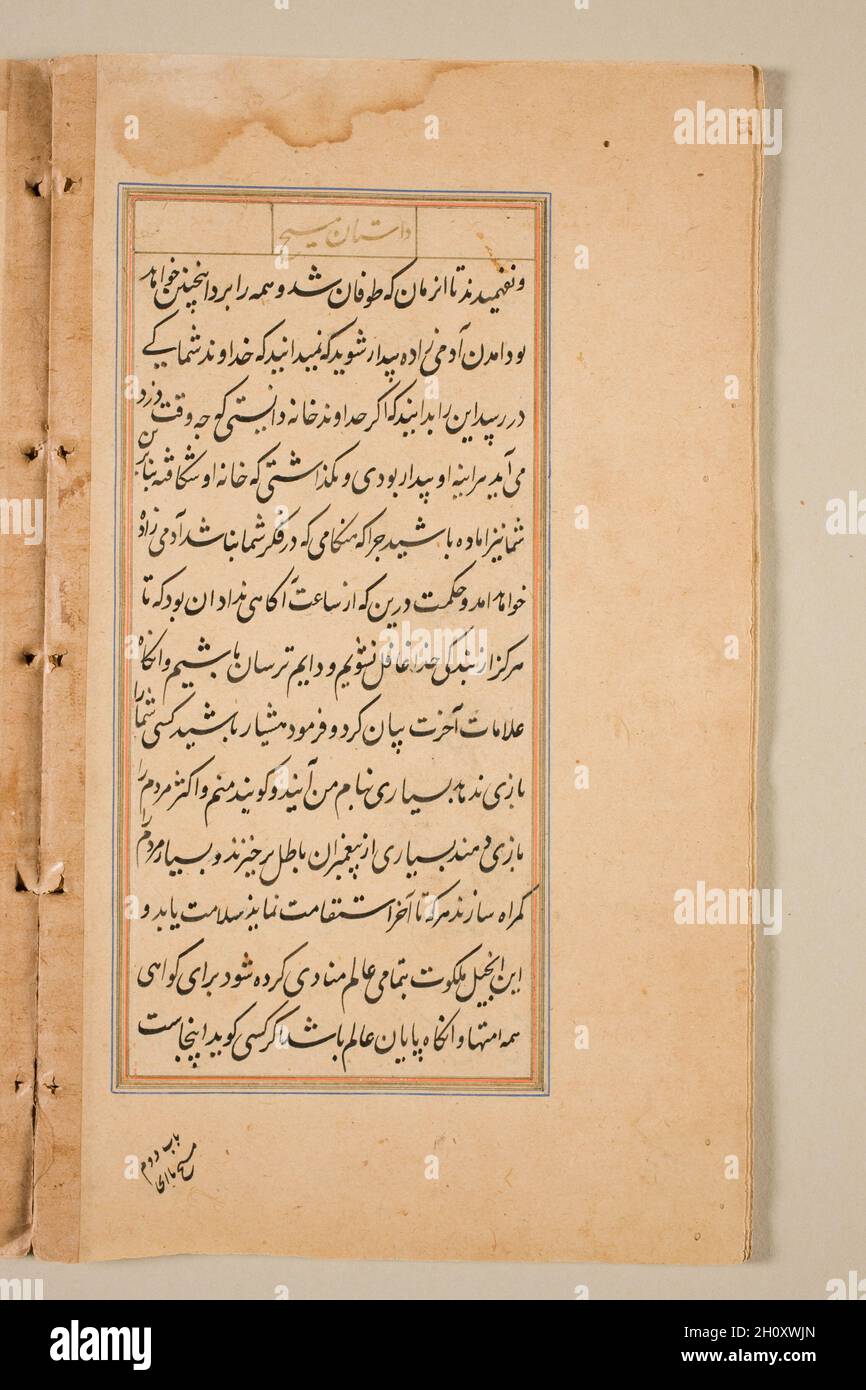 داستان مسیح
ونفهمیدند تا انزمان که طوفان شد و همه را برد اینچنین خواهد
بود امدن آدمی زاده بیدار شوید که نمیدانید که خداوند شما کے
در رسید این را بدانید که اکر خداوند خانه دانستی که جه وقت دزد
می آید هراینه او بیدار بودی و نکذاشتی که خانه او شکافته بنابرین
شما نیز اماده باشید جراکه هنکامی که در فکر شما نباشد آدمی زاده
خواهد امد و حکمت درین که از ساعت آکاهی نداد ان بود که تا
هرکز از بندکی خدا غافل نشویم و دایم ترسان باشیم وانکاه
علامات آخرت بیان کرد و فرمود هشیار باشید کسی شما را
بازی ندهد بسیاری بنام من آیند و کویند منم و اکثر مردم را
بازی دهند بسیاری از پیغمبران باطل برخیزند و بسیار مردم را
کمراه سازند هرکه تا آخر استقامت نماید سلامت یابد و
این انجیل ملکوت بتمامی عالم منادی کرده شود برای کواهی
همه امتها و انکاه پایان عالم باشد اکر کسی کوید اینجاست
باب دوم
مسیح با
alamy
alamy
Image ID: 2H0XWJN
www.alamy.com